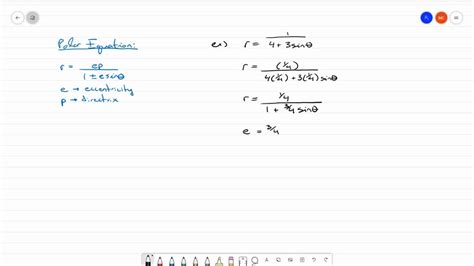 Polar Equation:
r = ep / 1 ± e sinθ
e → eccentricity
p → directrix
ex) r = 1 / 4 + 3 sinθ
r = (1/4) / 4(1/4) + 3(1/4) sinθ
r = 1/4 / 1 + 3/4 sinθ
e = 3/4